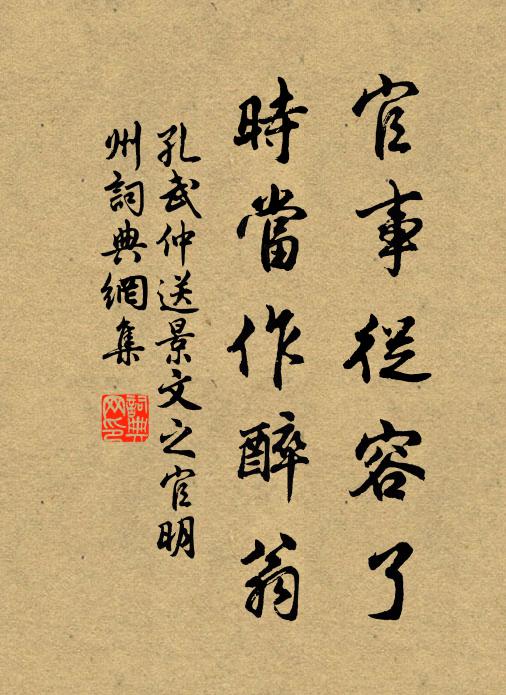 官事從容了
時當作醉翁
孔武仲送景文之官明
州詞典網集
詞典
网印